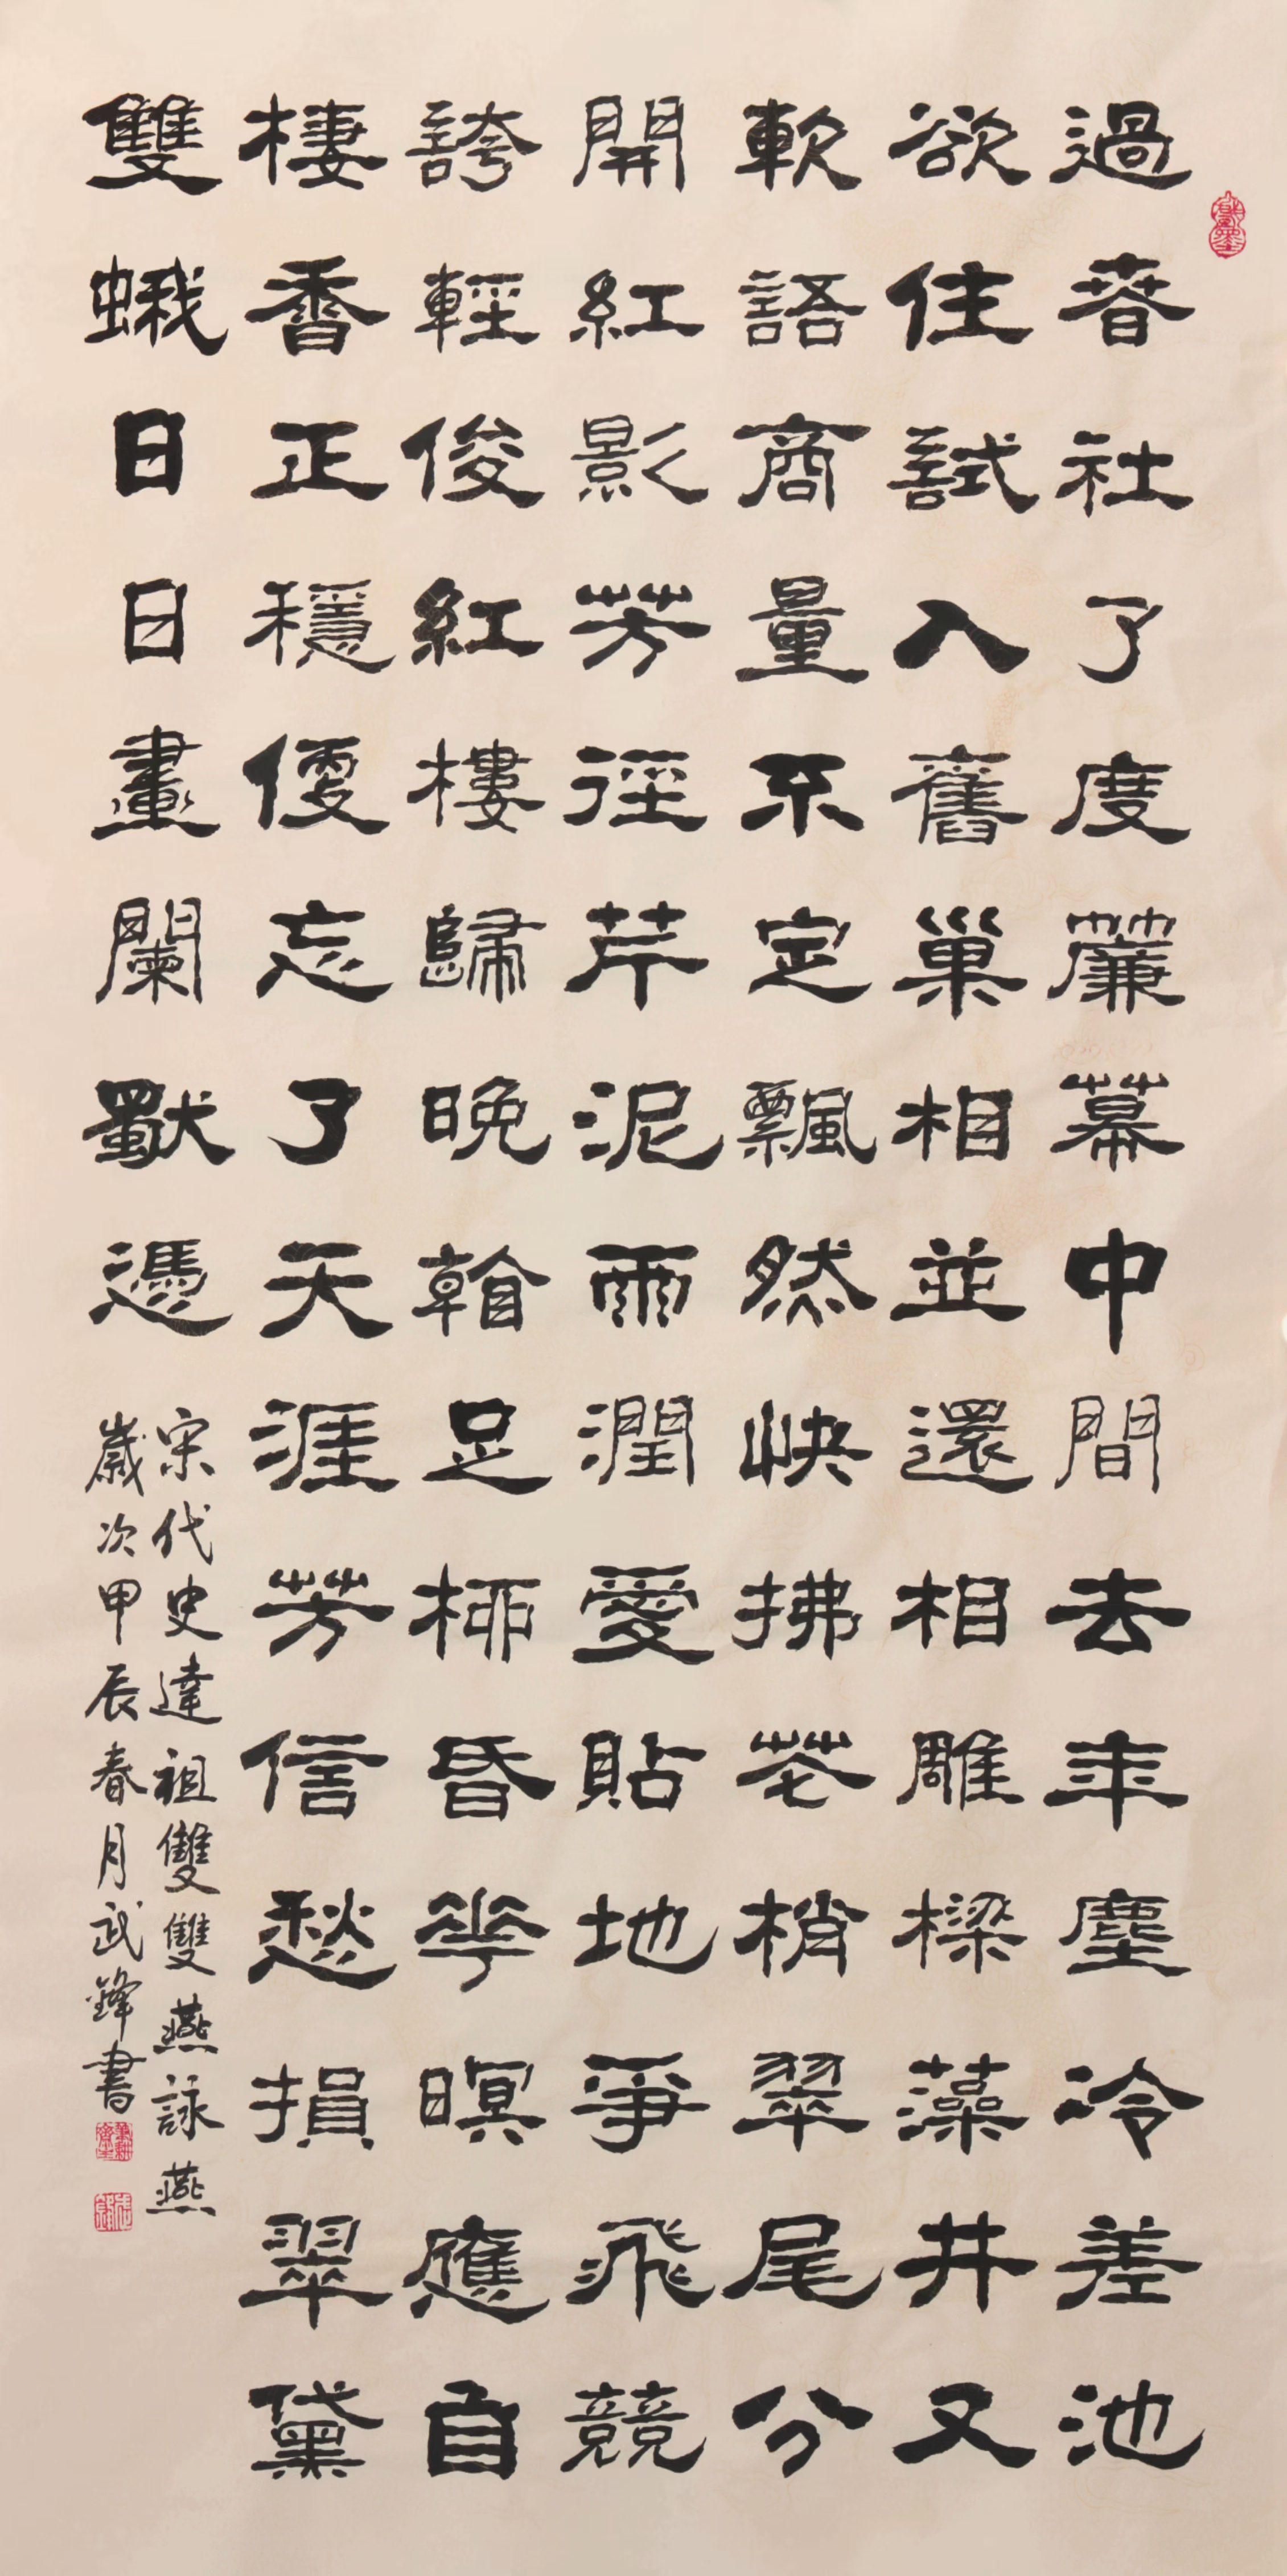 過春社了度簾幕中間去年塵冷差池
欲住試入舊巢相並還相雕樑藻井又
軟語商量不定飄然快拂花梢翠尾分
開紅影芳徑芹泥雨潤愛貼地爭飛競
誇輕俊紅樓歸晚看足柳昏花暝應自
棲香正穩便忘了天涯芳信愁損翠黛
雙蛾日日畫闌獨憑
宋代史達祖雙雙燕詠燕
歲次甲辰春月武鋒書